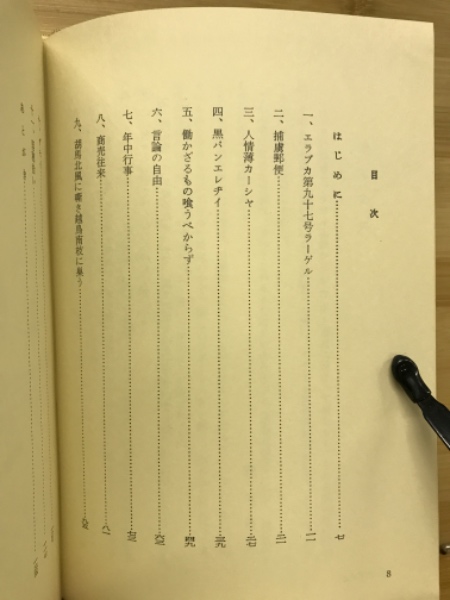 目次
はじめに……七
一、エラブカ第九十七号ラーゲル……一一
二、捕虜郵便……二一
三、人情薄カーシャ……二七
四、黒パンエレヂイ……三九
五、働かざるもの喰うべからず……四九
六、言論の自由……六二
七、年中行事……七三
八、商売往来……八一
九、胡馬北風に嘶き越鳥南枝に巣う
8